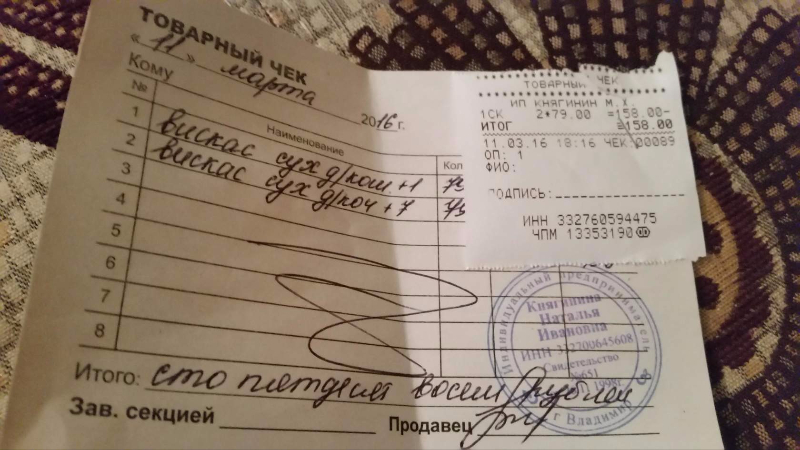 ТОВАРНЫЙ ЧЕК
« 11 » марта 2016 г.
Кому
№ Наименование Кол
1 вискас сух д/кош +1
2 вискас сух д/кош +7
3
4
5
6
7
8
Итого: сто пятдеият восем рублей
Зав. секцией Продавец
ТОВАРНЫЙ ЧЕК
ИП КНЯГИНИН М.Х.
1СК 2*79.00 =158.00-
ИТОГ ≡158.00
11.03.16 18:16 ЧЕК:00089
ОП: 1
ФИО:
ПОДПИСЬ:
ИНН 332760594475
ЧПМ 13353190
Индивидуальный предприниматель
Княгинина
Наталья
Ивановна
ИНН 332700645608
Свидетельство
№651
1998г.
г Владимир